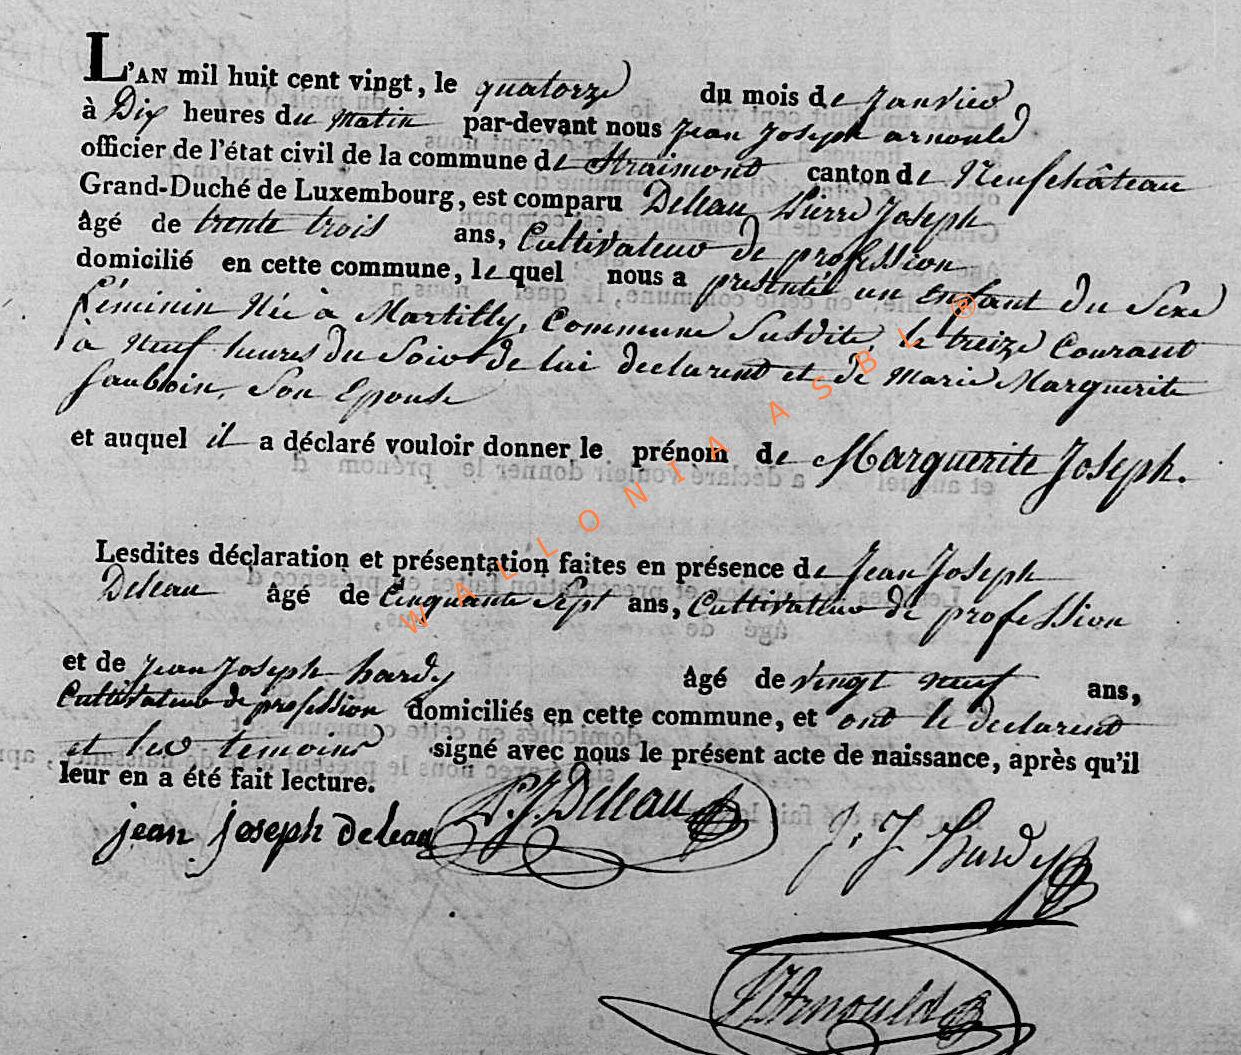 L'AN mil huit cent vingt, le quatorze du mois de Janvier
à Dix heures du matin par-devant nous Jean Joseph arnould
officier de l'état civil de la commune de Straimont canton de Neufchâteau
Grand-Duché de Luxembourg, est comparu Deleau Pierre Joseph
âgé de trente trois ans, Cultivateur de profession
domicilié en cette commune, le quel nous a presenté un enfant du Sexe
féminin Née à Martilly, Commune Susdite, le treize Courant
à neuf heures du Soir de lui declarent et de Marie Marguerite
Son Epouse
et auquel il a déclaré vouloir donner le prénom de Marguerite Joseph.
Lesdites déclaration et présentation faites en présence de Jean Joseph
Deleau âgé de Cinquante Sept ans, Cultivateur de profession
et de Jean Joseph hardy âgé de vingt neuf ans,
Cultivateur de profession domiciliés en cette commune, et ont le declarent
et les temoins signé avec nous le présent acte de naissance, après qu'il
leur en a été fait lecture.
jean joseph deleau P. J. Deleau J. J. hardy
JJ Arnould
WALLONIA ASBL ®